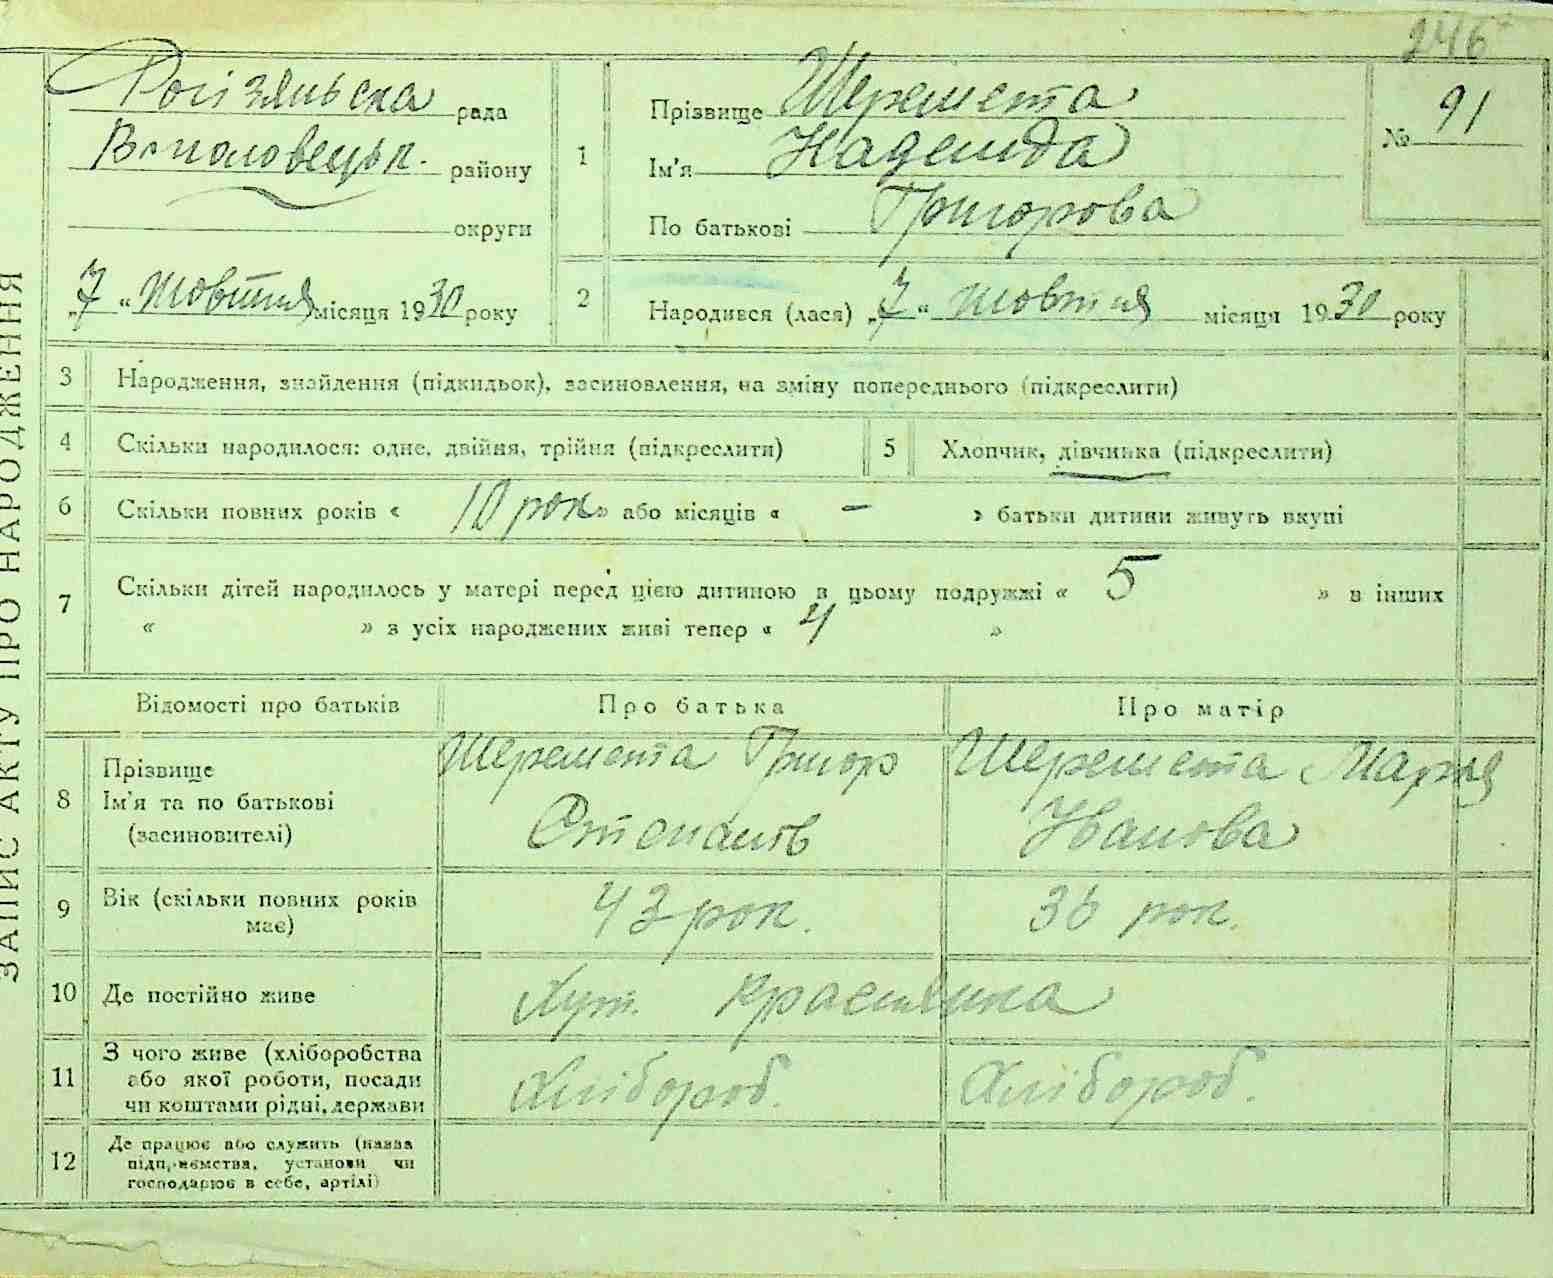 246
Рогізянська рада
района
округи
„7“ жовтня місяця 1930 року
1
Прізвище Шеремета
Ім'я Надежда
По батькові Григорова
№ 91
2 Народився (лася) „7“ жовтня місяця 1930 року
ЗАПИС АКТУ ПРО НАРОДЖЕННЯ
3 Народження, знайдення (підкидьок), засиновлення, на зміну попереднього (підкреслити)
4 Скільки народилося: одне, двійня, трійня (підкреслити) 5 Хлопчик, дівчинка (підкреслити)
6 Скільки повних років « 10 рок» або місяців « – » батьки дитини живуть вкупі
7 Скільки дітей народилось у матері перед цією дитиною в цьому подружжі « 5 » в інших
« » з усіх народжених живі тепер « 4 »
Відомості про батьків Про батька Про матір
8 Прізвище
Ім'я та по батькові
(засиновителі)
Шеремета Григор
Степанов
Шеремета Мария
Иванова
9 Вік (скільки повних років
має)
43 рок. 36 рок.
10 Де постійно живе Хут.
11 З чого живе (хліборобства
або якої роботи, посади
чи коштами рідні, держави
Хлібороб. Хлібороб.
12 Де працює або служить (назва
підприємства, установи чи
господарює в себе, артілі)